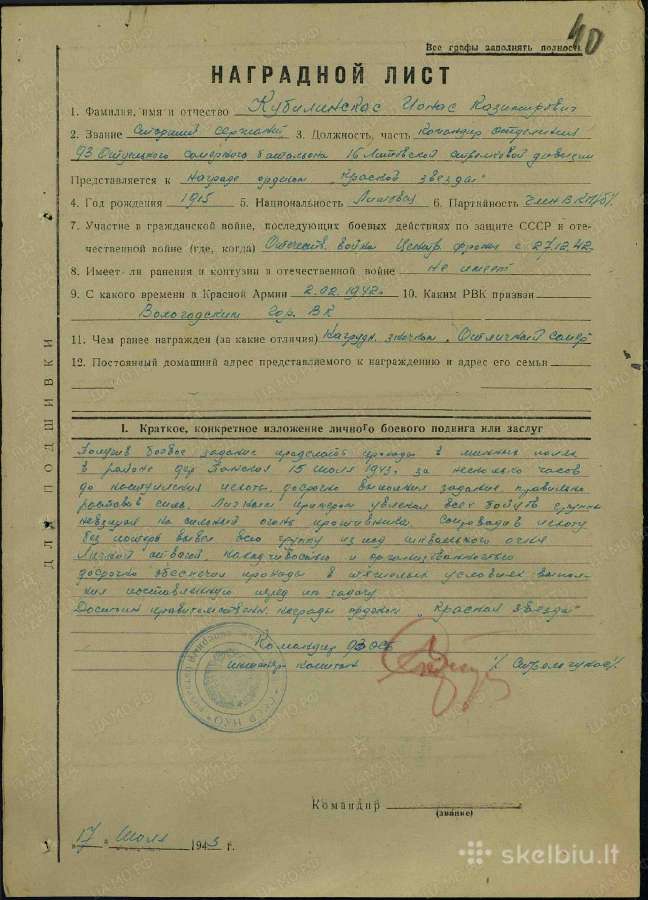 40
Все графы заполнять полностью
НАГРАДНОЙ ЛИСТ
1. Фамилия, имя и отчество Кубилинскас Ионас Казимирович
2. Звание Старший сержант 3. Должность, часть Командир отделения
93 Отдельного саперного батальона 16 Литовской стрелковой дивизии
Представляется к награде орденом "Красной звезды"
4. Год рождения 1915 5. Национальность Литовец 6. Партийность Член ВКП/б/.
7. Участие в гражданской войне, последующих боевых действиях по защите СССР и оте-
чественной войне (где, когда) Отечеств. война Центр. фронт с 27.12.42.
8. Имеет ли ранения и контузии в отечественной войне не имеет
9. С какого времени в Красной Армии 2.02.1942г. 10. Каким РВК призван
Вологодским Гор. ВК
11. Чем ранее награжден (за какие отличия) Нагрудн. значком "Отличный сапер"
12. Постоянный домашний адрес представляемого к награждению и адрес его семьи
1. Краткое, конкретное изложение личного боевого подвига или заслуг
Получив боевое задание проделать проходы в минных полях
в районе дер. 15 июля 1943г. за несколько часов
до наступления пехоты, досрочно выполнил задание правильно
расставив силы. Личным примером увлекая всех бойцов группы
невзирая на сильный огонь противника. пехоту
без потерь вывел всю группу из под шквального огня
Личной отвагой, находчивостью и организованностью
досрочно обеспечил проходы в условиях выпол-
нил поставленную перед ним задачу.
Достоин правительствен. награды орденом "Красная звезда"
Командир 93 ОСБ
инженер-капитан /Стромгунов/.
СССР НКО
Командир
(звание)
"17" Июля 1943 г.
ДЛЯ ПОДШИВКИ
skelbiu.lt